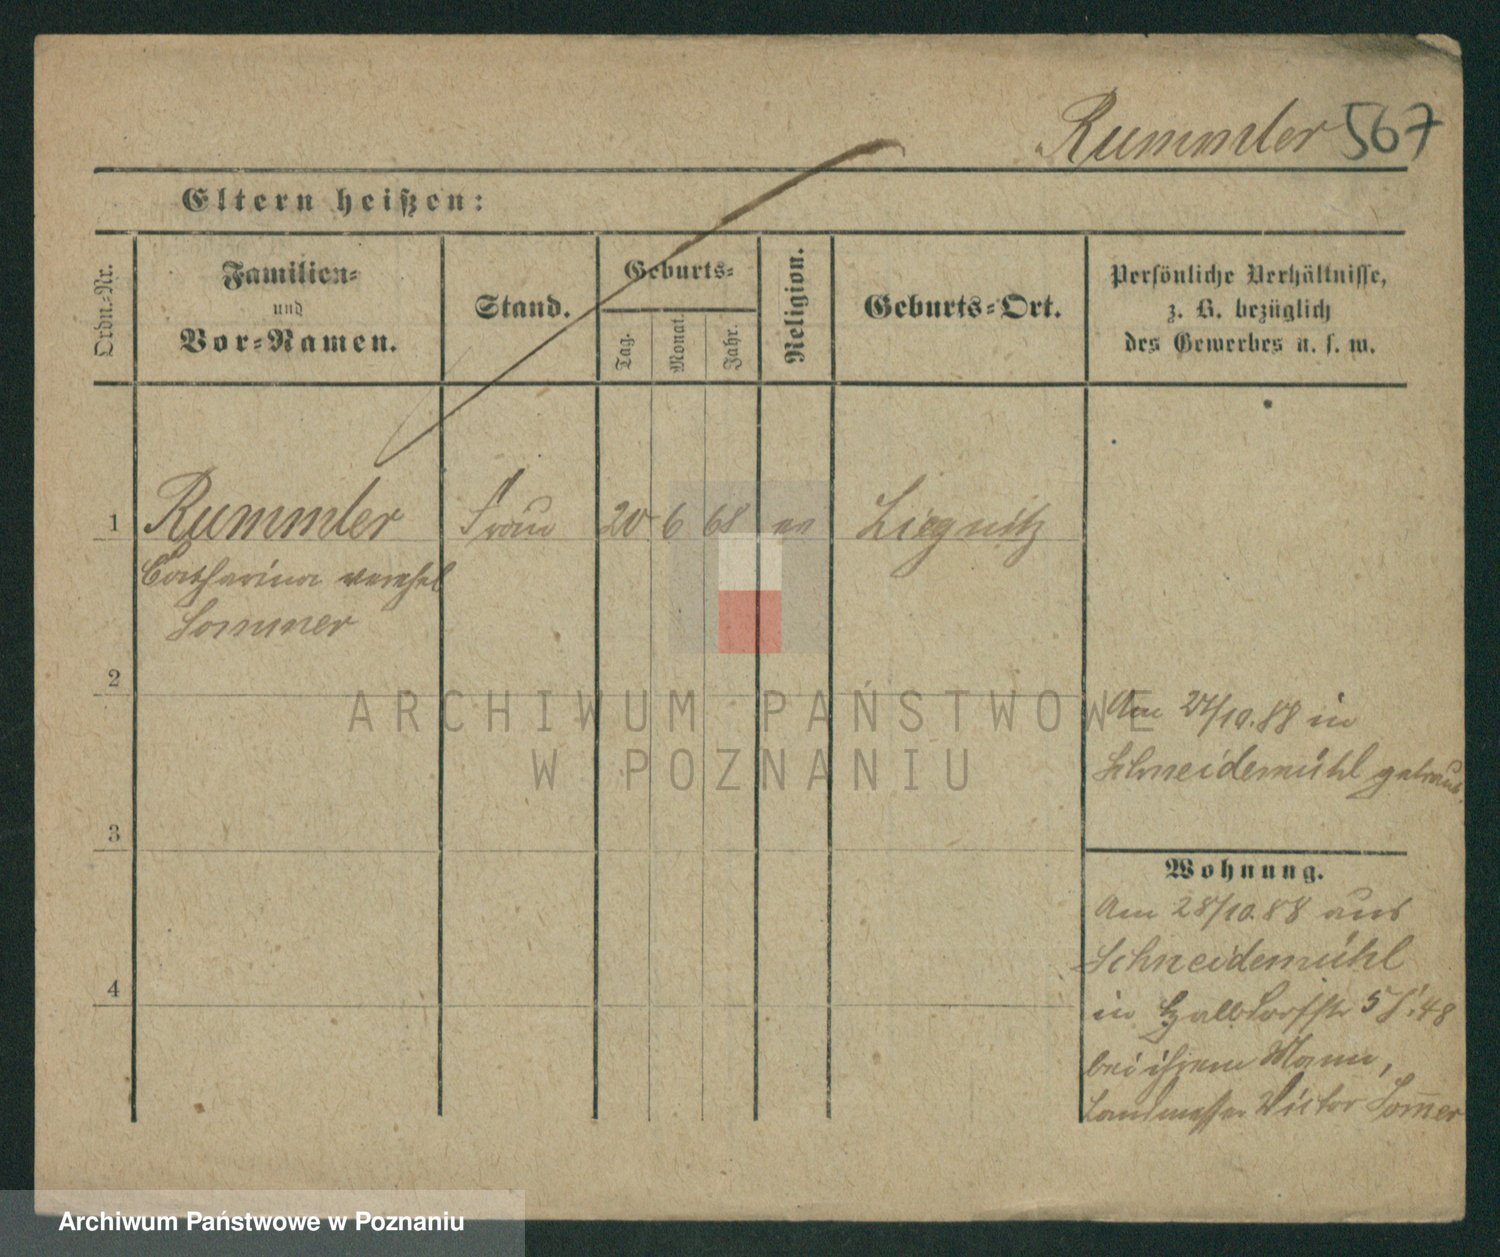 Rummler 567
Eltern heißen:
Ordn.-Nr.
Familien-
und
Vor-Namen.
Stand.
Geburts-
Tag.
Monat.
Jahr.
Religion.
Geburts-Ort.
Persönliche Verhältnisse,
z. B. bezüglich
des Gewerbes u. s. w.
1 Rummler Frau 20 6 68 ev Liegnitz
Catharina verehel
Sommer
2
Am 27/10.88 in
Schneidemühl getraut.
3
Wohnung.
Am 28/10.88 aus
Schneidemühl
4
in Halbdorfstr 5
bei ihrem Mann,
Landmesser Victor Som̄er
ARCHIWUM PAŃSTWOWE
W POZNANIU
Archiwum Państwowe w Poznaniu